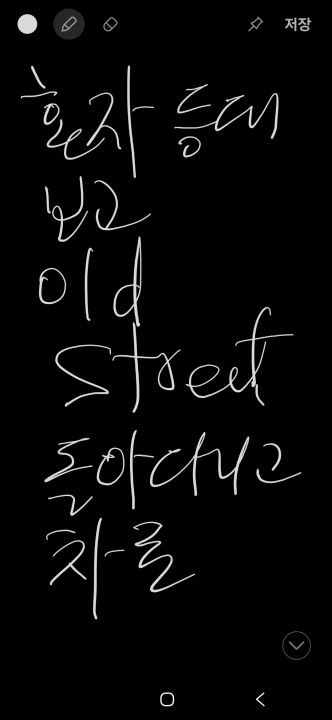 저장
혼자 등대
보고
old
street
돌아다니고
차로